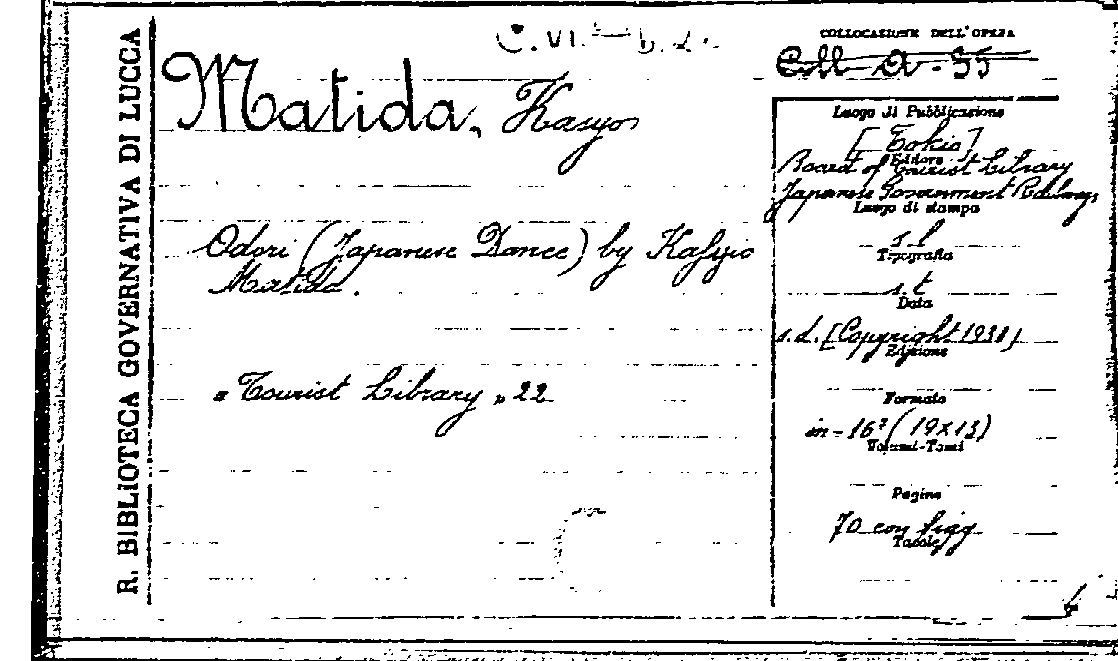 R. BIBLIOTECA GOVERNATIVA DI LUCCA
C. VI. b. 2.
COLLOCAZIONE DELL'OPERA
Coll A-55
Matida, Kasyo
Odori (Japanese Dance) by Kasyo
Matida.
« Tourist Library » 22
Luogo di Pubblicazione
[Tokio]
Editore
Board of Tourist Library
Japanese Government Railways
Luogo di stampa
s. l
Tipografia
s. t
Data
s. d. [Copyright 1938]
Edizione
Formato
in-16° (19x13)
Volumi-Tomi
Pagine
70 con figg
Tavole